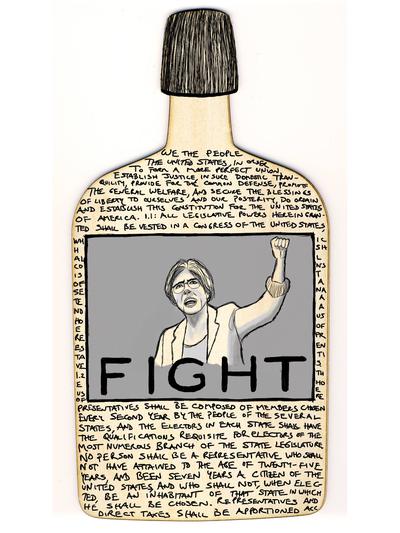 WE THE PEOPLE
THE UNITED STATES, IN ORDER
TO FORM A MORE PERFECT UNION,
ESTABLISH JUSTICE, INSURE DOMESTIC TRAN-
QUILITY, PROVIDE FOR THE COMMON DEFENSE, PROMOTE
THE GENERAL WELFARE, AND SECURE THE BLESSINGS
OF LIBERTY TO OURSELVES AND OUR POSTERITY, DO ORDAIN
AND ESTABLISH THIS CONSTITUTION FOR THE UNITED STATES
OF AMERICA. 1.1: ALL LEGISLATIVE POWERS HEREIN GRAN-
TED SHALL BE VESTED IN A CONGRESS OF THE UNITED STATES
FIGHT
PRESENTATIVES SHALL BE COMPOSED OF MEMBERS CHOSEN
EVERY SECOND YEAR BY THE PEOPLE OF THE SEVERAL
STATES, AND THE ELECTORS IN EACH STATE SHALL HAVE
THE QUALIFICATIONS REQUISITE FOR ELECTORS OF THE
MOST NUMEROUS BRANCH OF THE STATE LEGISLATURE
NO PERSON SHALL BE A REPRESENTATIVE WHO SHALL
NOT HAVE ATTAINED TO THE AGE OF TWENTY-FIVE
YEARS, AND BEEN SEVEN YEARS A CITIZEN OF THE
UNITED STATES AND WHO SHALL NOT, WHEN ELEC-
TED, BE AN INHABITANT OF THAT STATE IN WHICH
HE SHALL BE CHOSEN. REPRESENTATIVES AND
DIRECT TAXES SHALL BE APPORTIONED ACC